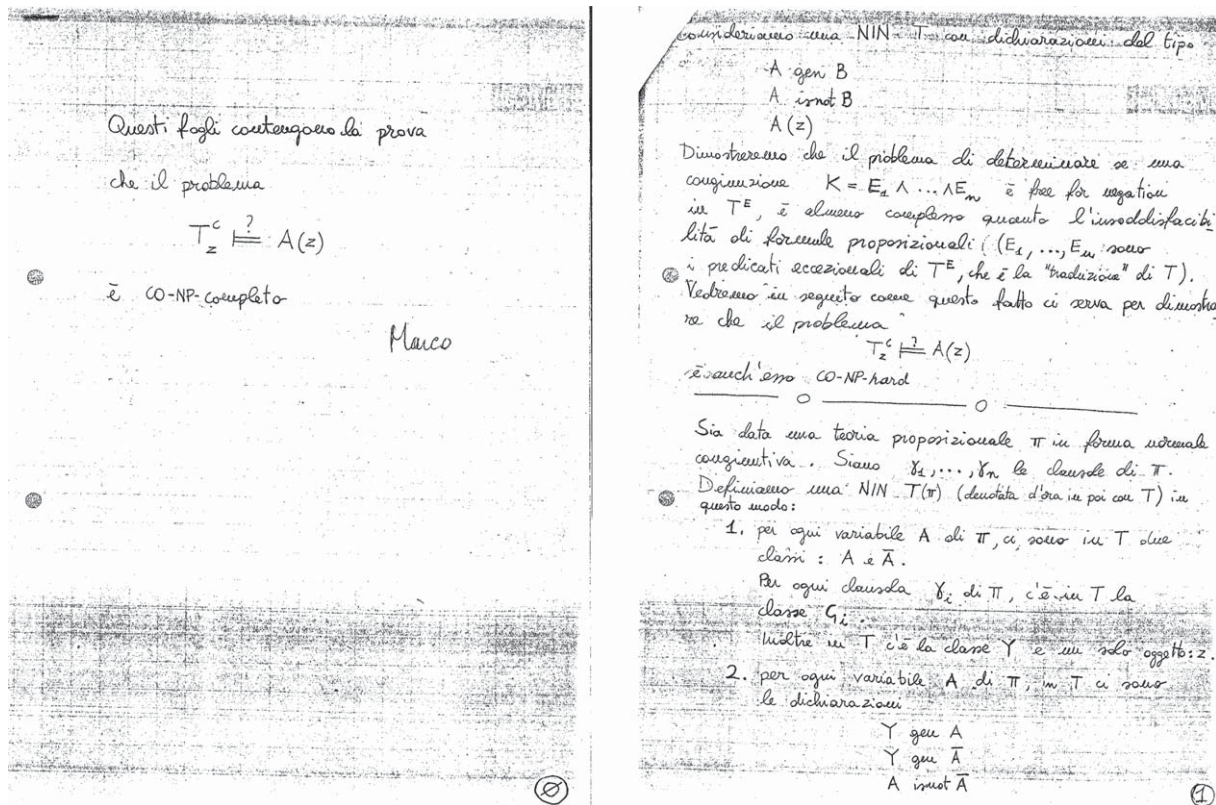 Questi fogli contengono la prova
che il problema
T_z^c ⊨? A(z)
è CO-NP-completo
Marco
∅
consideriamo una NIN T con dichiarazioni del tipo
A gen B
A isnot B
A(z)
Dimostreremo che il problema di determinare se una
congiunzione K = E₁ ∧ ... ∧ Eₘ è free for negation
in T^E, è almeno complesso quanto l'insoddisfacibi
lità di formule proposizionali ((E₁, ..., Eₘ sono
i predicati eccezionali di T^E, che è la "traduzione" di T).
Vedremo in seguito come questo fatto ci serva per dimostra
re che il problema
T_z^c ⊨? A(z)
è anch'esso CO-NP-hard
Sia data una teoria proposizionale π in forma normale
congiuntiva. Siano γ₁, ..., γₙ le clausole di π.
Definiamo una NIN T(π) (denotata d'ora in poi con T) in
questo modo:
1. per ogni variabile A di π, ci sono in T due
classi : A e A̅.
Per ogni clausola γᵢ di π, c'è in T la
classe Gᵢ.
Inoltre in T c'è la classe Y e un solo oggetto: z.
2. per ogni variabile A di π, in T ci sono
le dichiarazioni
Y gen A
Y gen A̅
A isnot A̅
1